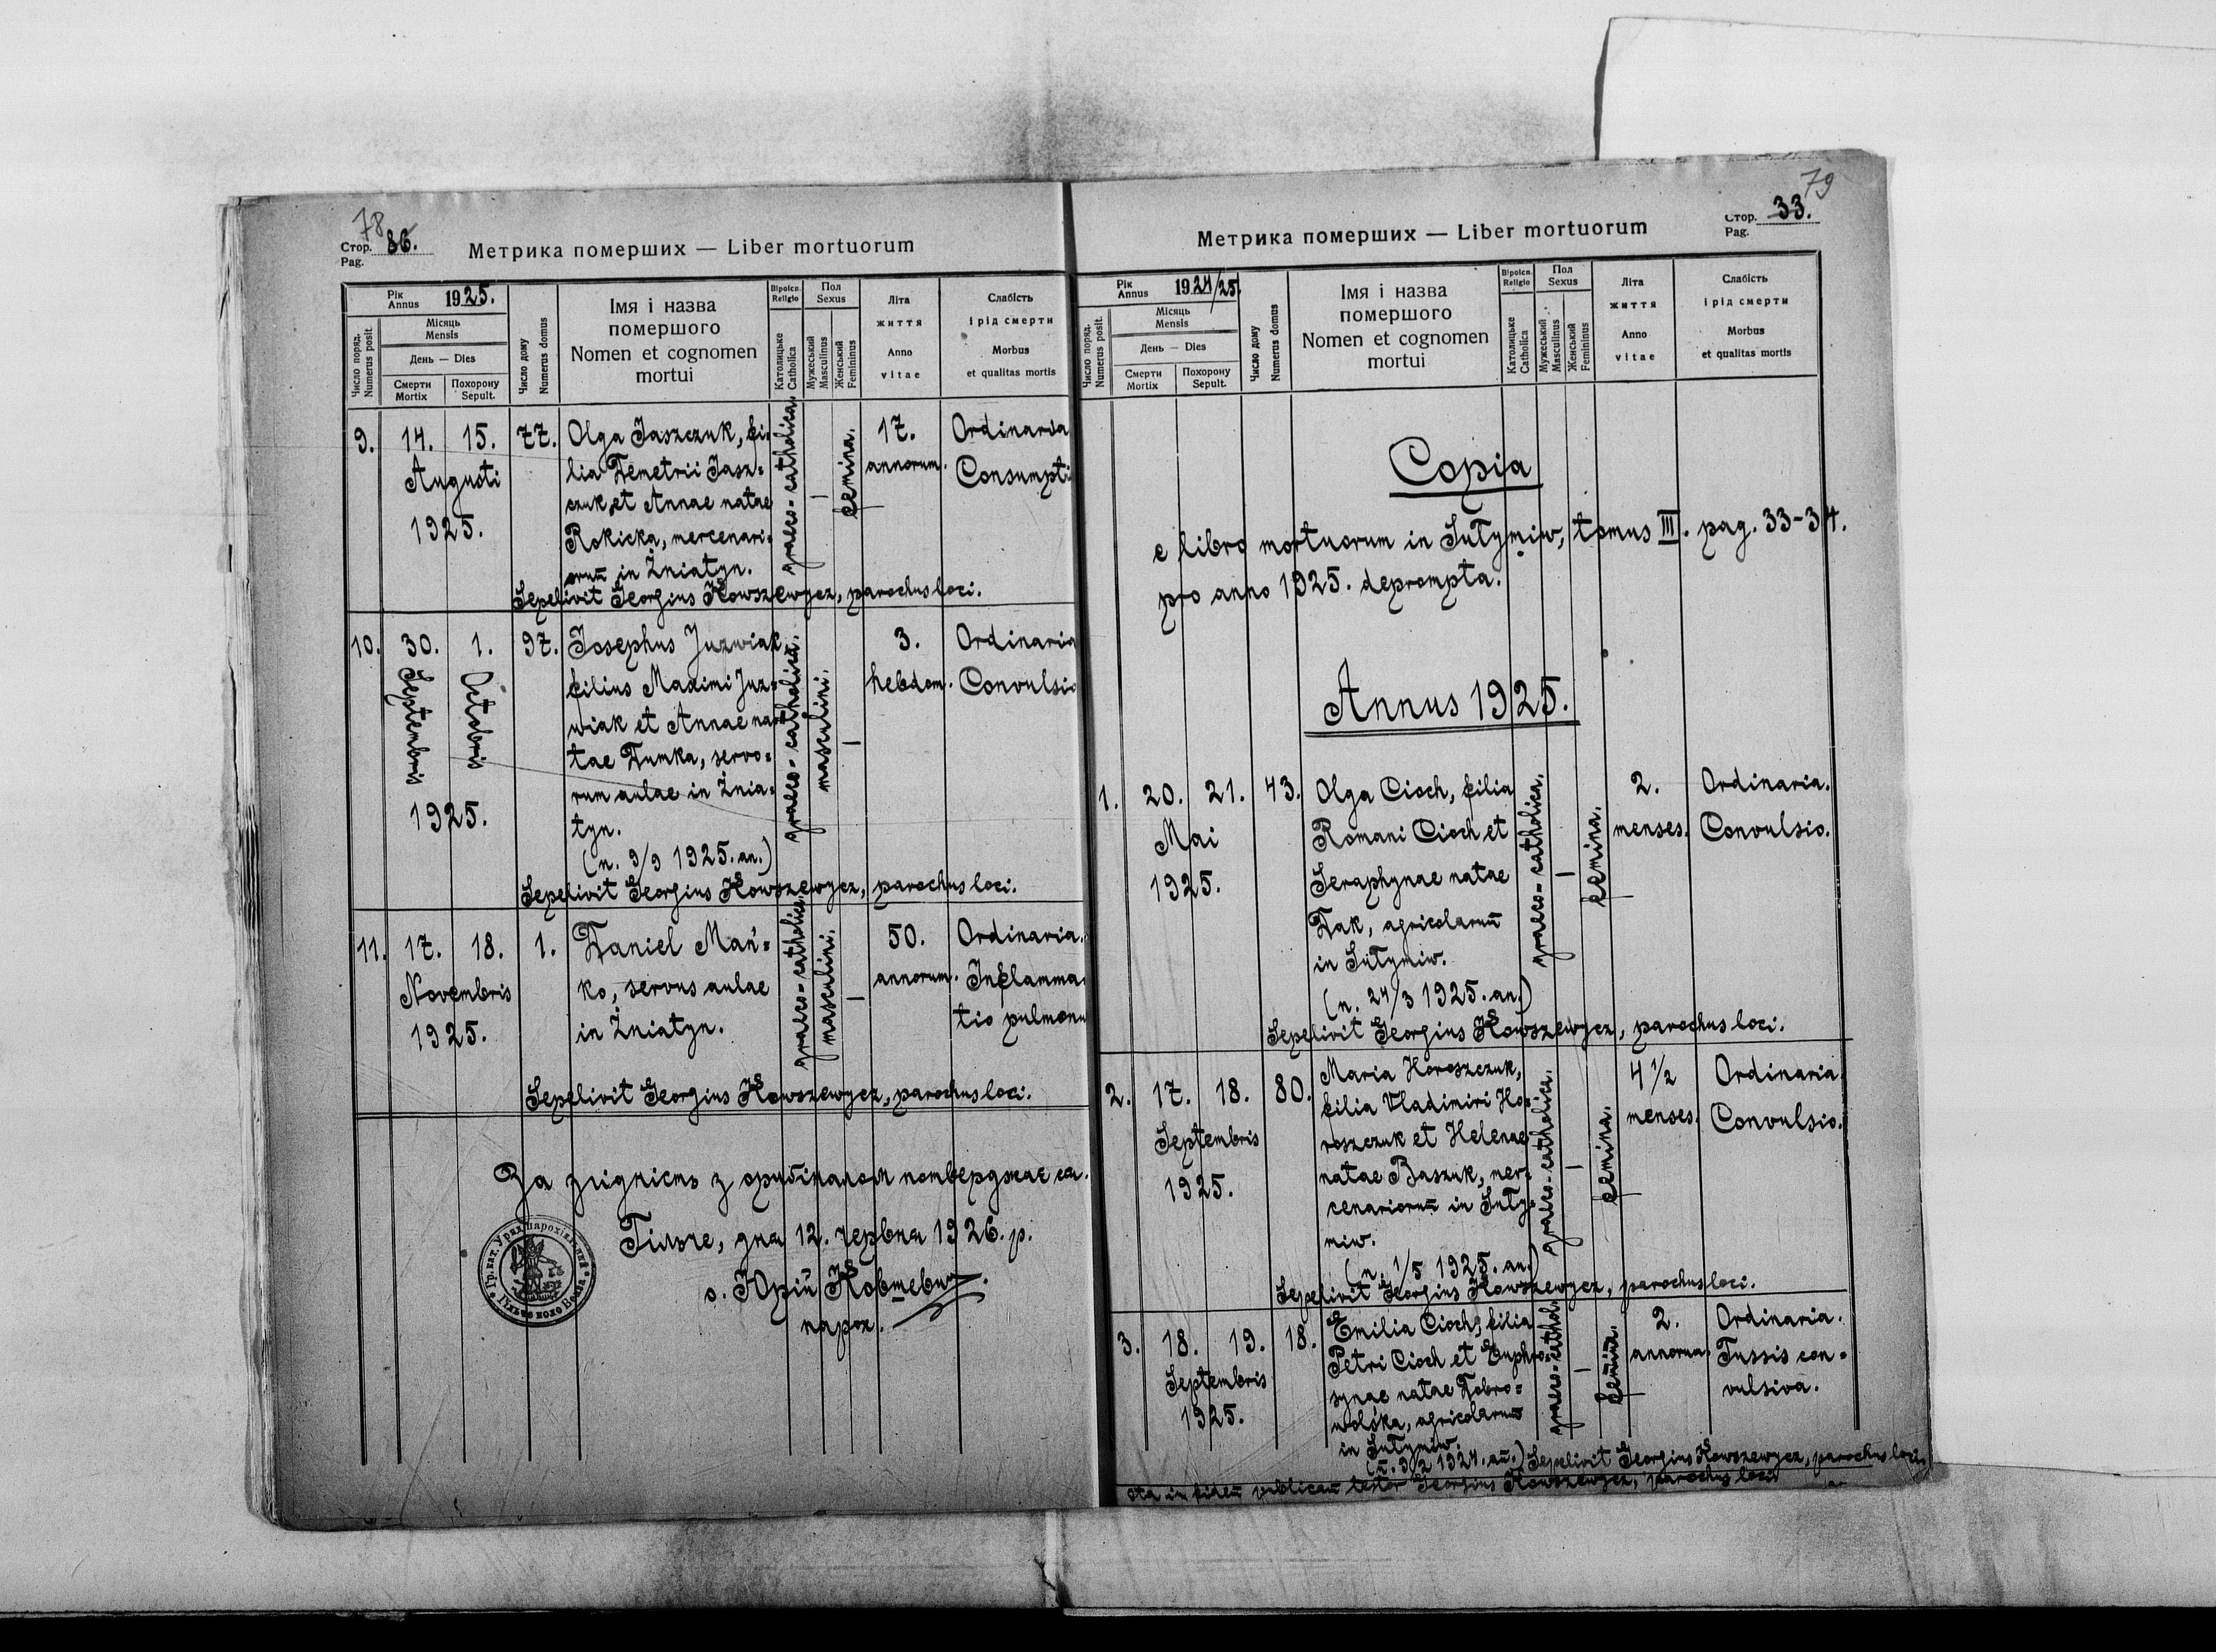 78
Стор. 86.
Pag.
Метрика померших — Liber mortuorum
Рік
Annus 1925.
Число поряд.
Numerus posit.
Місяць
Mensis
День — Dies
Смерти
Mortix
Похорону
Sepult.
Число дому
Numerus domus
Імя і назва
помершого
Nomen et cognomen
mortui
Віроісп.
Religio
Католицьке
Catholica
Пол
Sexus
Мужеський
Masculinus
Женський
Femininus
Літа
життя
Anno
vitae
Слабість
і рід смерти
Morbus
et qualitas mortis
9. 14. 15. 77. Olga Jaszczuk, fi- 17. Ordinaria
Augusti lia Demetrii Jasz= annorum. Consumpti
czuk, et Annae natae
1925. Rokicka, mercenari=
orum in Żniatyn.
graeco-catholica.
—
femina.
Sepelivit Georgius Kowszewycz, parochus loci.
10. 30. 1. 97. Josephus Juzwiak, 3. Ordinaria
Septembris
Octobris
filius Maximi Juz= hebdom. Convulsio
wiak et Annae na=
tae Dumka, servo=
rum aulae in Żnia=
1925. tyn.
(n. 9/9 1925. an.)
graeco-catholica.
masculini.
—
Sepelivit Georgius Kowszewycz, parochus loci.
11. 17. 18. 1. Daniel Mań= 50. Ordinaria.
Novembris ko, servus aulae annorum. Inflamma=
1925. in Żniatyn. tio pulmonu
graeco-catholica.
masculini.
—
Sepelivit Georgius Kowszewycz, parochus loci.
За згідність з оригіналом потверджає ся.
Гільче, дня 12. червня 1926. р.
о. Юрій Ковшевич.
парох.
79
Стор. 33.
Pag.
Метрика померших — Liber mortuorum
Рік
Annus 1924/25.
Число поряд.
Numerus posit.
Місяць
Mensis
День — Dies
Смерти
Mortix
Похорону
Sepult.
Число дому
Numerus domus
Імя і назва
помершого
Nomen et cognomen
mortui
Віроісп.
Religio
Католицьке
Catholica
Пол
Sexus
Мужеський
Masculinus
Женський
Femininus
Літа
життя
Anno
vitae
Слабість
і рід смерти
Morbus
et qualitas mortis
Copia
e libro mortuorum in Sułymiw, tomus III. pag. 33-34.
pro anno 1925. deprompta.
Annus 1925.
1. 20. 21. 43. Olga Cioch, filia 2. Ordinaria.
Mai Romani Cioch et menses. Convulsio.
1925. Seraphynae natae
Dak, agricolarum̄
in Sułymiw.
(n. 24/3 1925. an.)
graeco-catholica.
—
femina.
Sepelivit Georgius Kowszewycz, parochus loci.
2. 17. 18. 80. Maria Horoszczuk, 4 1/2 Ordinaria.
filia Vladimiri Ho= menses. Convulsio.
Septembris roszczuk et Helenae
1925. natae Baszuk, mer=
cenariorum̄ in Suły=
miw.
(n. 1/5 1925. an.)
graeco-catholica.
—
femina.
Sepelivit Georgius Kowszewycz, parochus loci.
3. 18. 19. 18. Emilia Cioch, filia 2. Ordinaria.
Petri Cioch et Euphro= annorum. Tussis con=
Septembris synae natae Dobro= vulsiva.
1925. wolśka, agricolarum̄
in Sułymiw.
graeco-cathol.
—
femina.
(n. 9/2 1924. an.) Sepelivit Georgius Kowszewycz, parochus loci.
ota in fidem publicam testor Georgius Kowszewycz, parochus loci